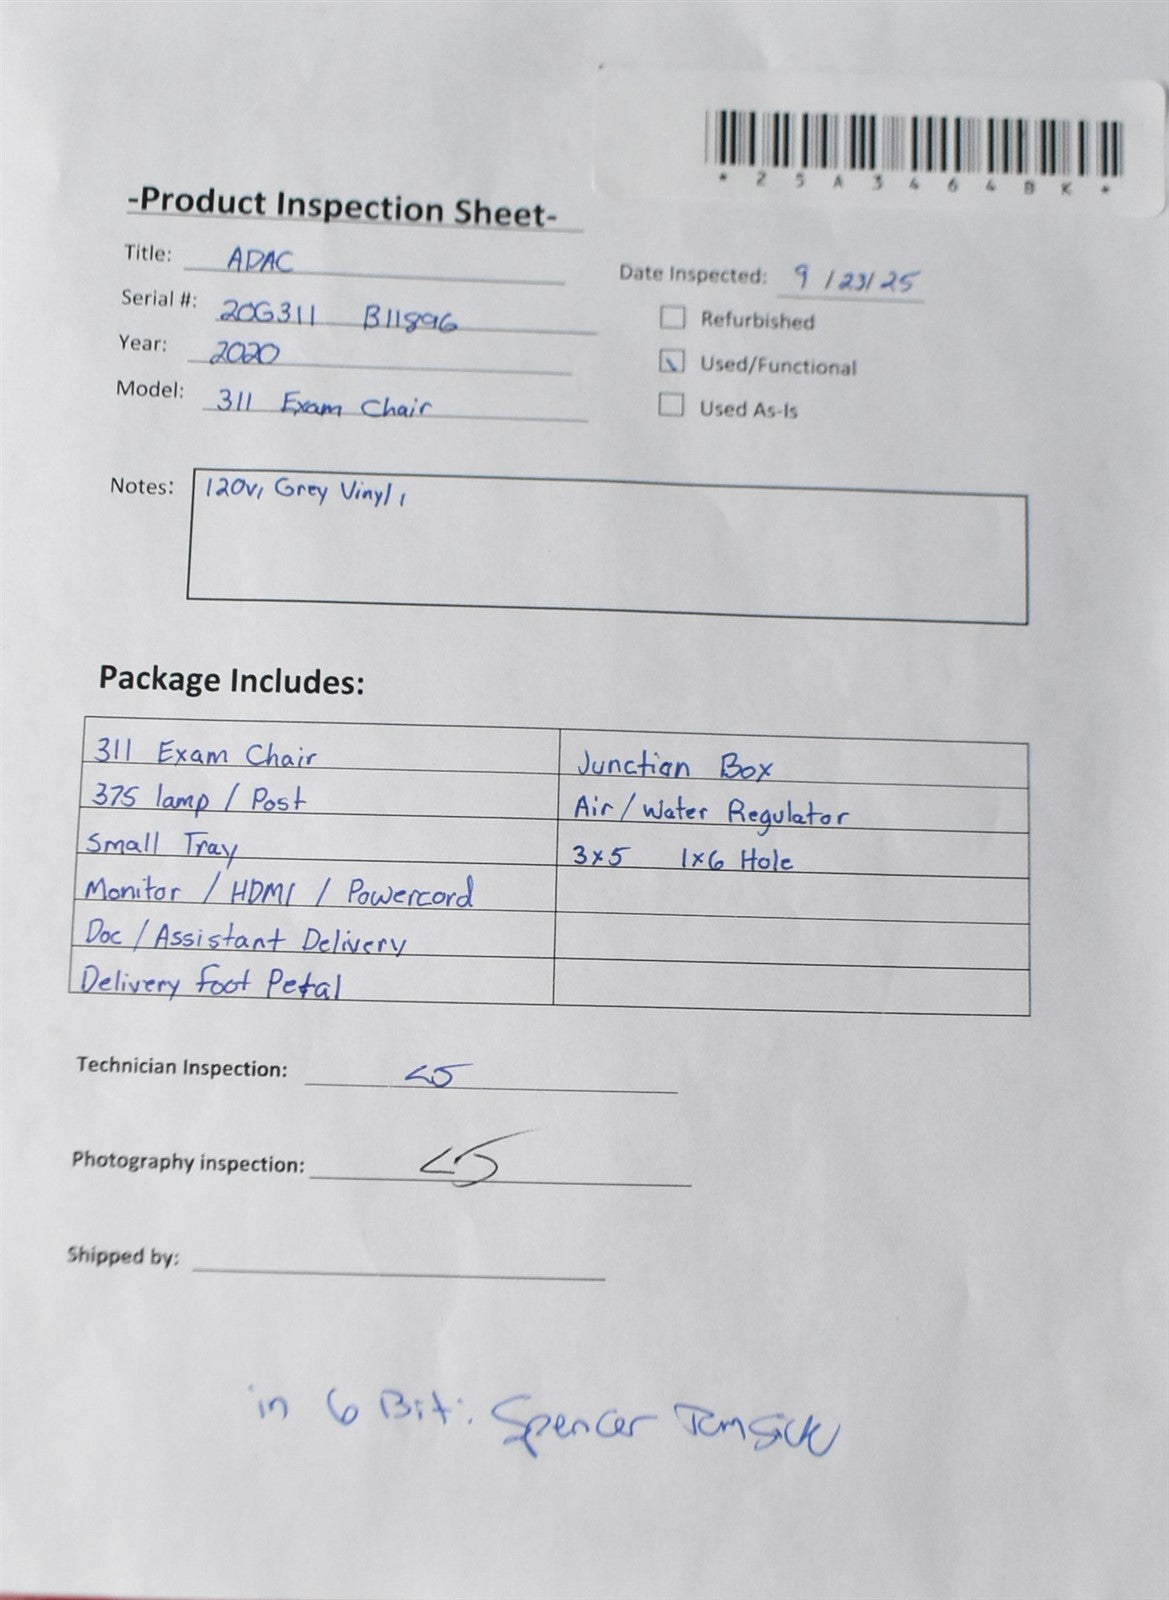 * 2 5 A 3 4 6 4 B K *
-Product Inspection Sheet-
Title: ADAC
Date Inspected: 9 / 23 / 25
Serial #: 20G311 B11896
Refurbished
Year: 2020
Used/Functional
Model: 311 Exam Chair
Used As-Is
Notes: 120v, Grey Vinyl,
Package Includes:
311 Exam Chair Junction Box
375 lamp / Post Air / Water Regulator
Small Tray 3x5 1x6 Hole
Monitor / HDMI / Powercord
Doc / Assistant Delivery
Delivery foot Petal
Technician Inspection:
Photography inspection:
Shipped by:
in 6 Bit: Spencer